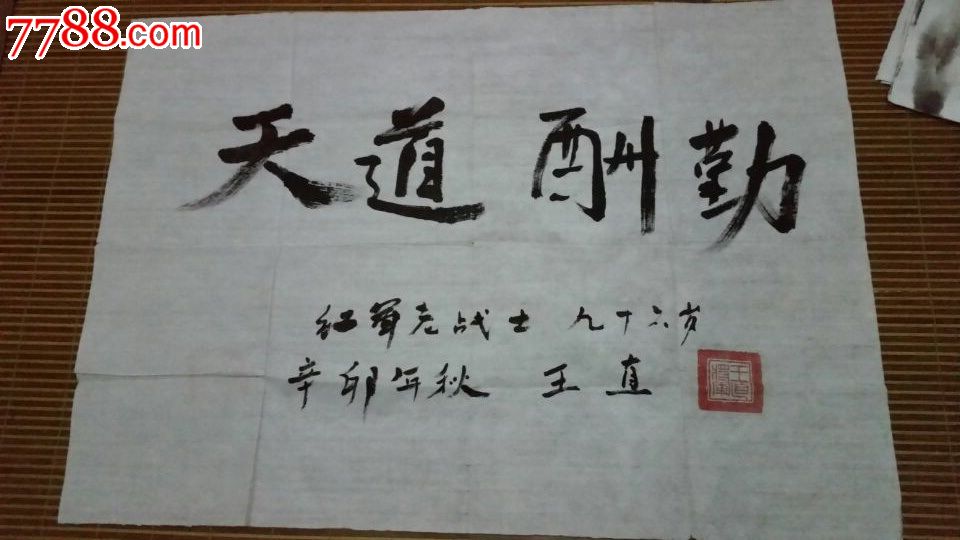 7788.com
天道 酬勤
红军老战士 九十六岁
辛卯年秋 王直